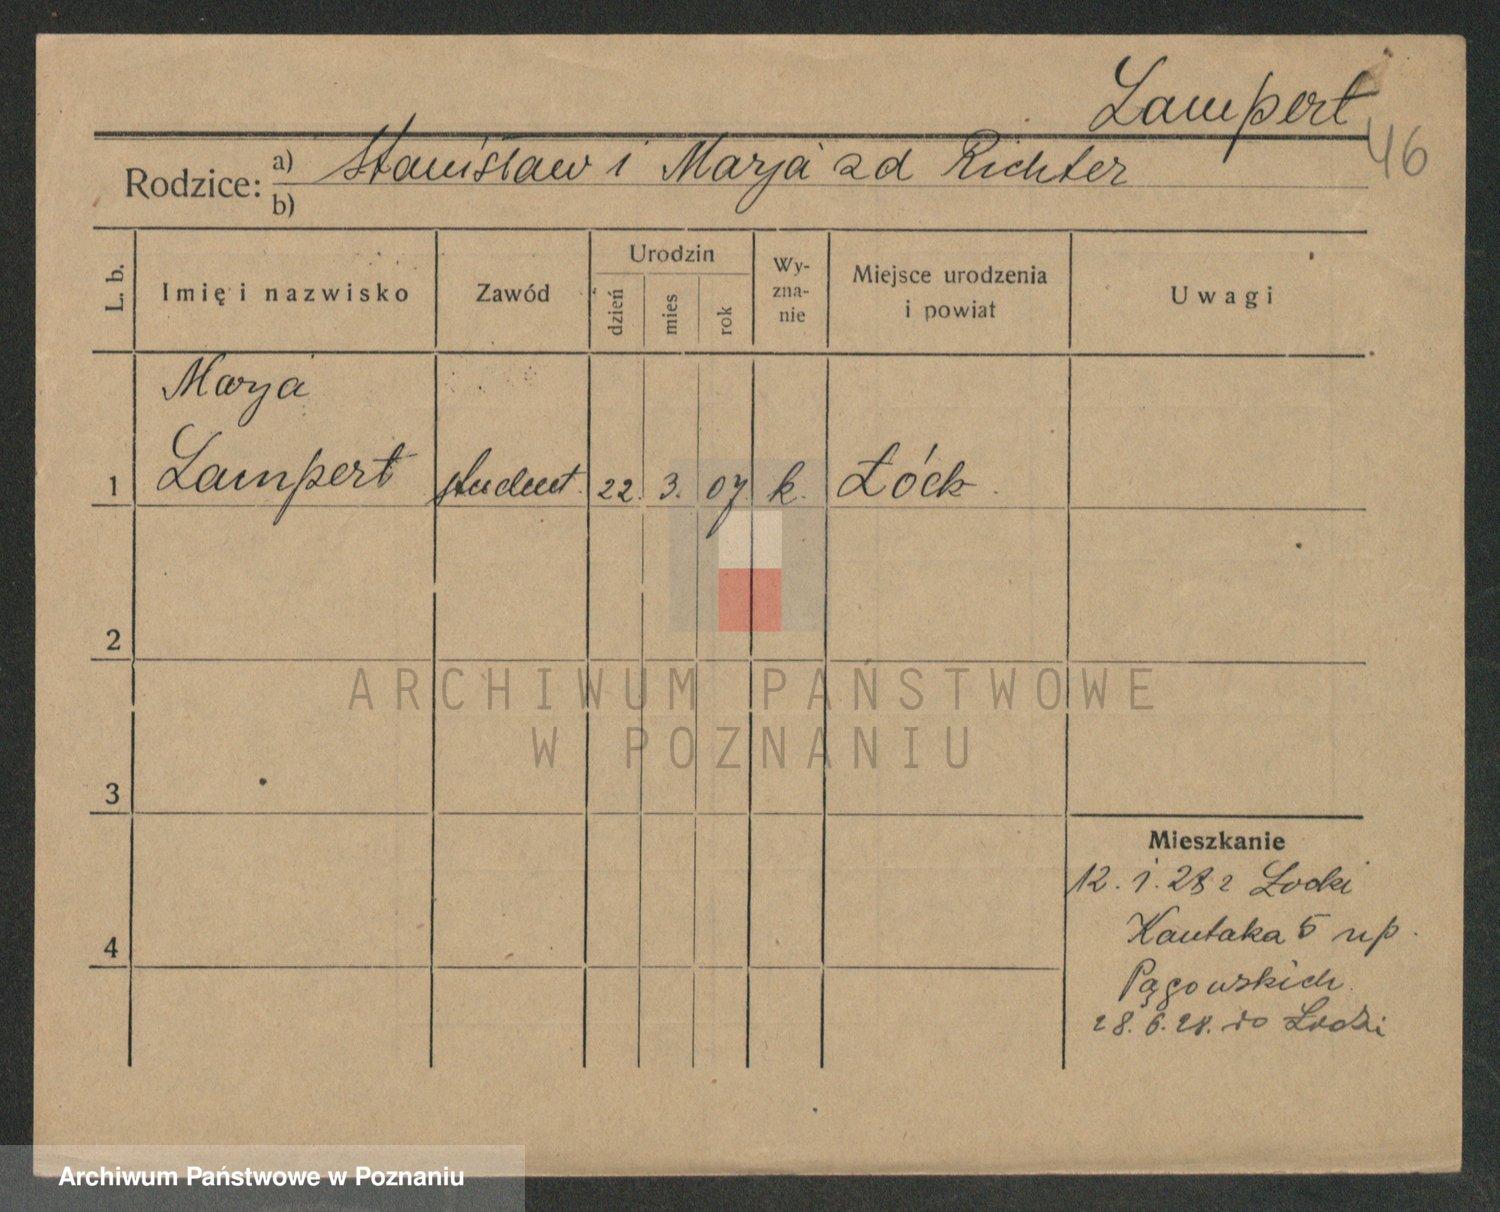 Lampert
46
Rodzice: a) Stanisław i Marja zd Richter
b)
L. b.
Imię i nazwisko
Zawód
Urodzin
dzień
mies
rok
Wy-
zna-
nie
Miejsce urodzenia
i powiat
Uwagi
Marja
1 Lampert student. 22. 3. 07. k. Łóck.
2
3
4
Mieszkanie
12. 1. 28 z Lodki
Kantaka 5 np.
Pągowskich
28. 6. 28. do Lodzi
ARCHIWUM PAŃSTWOWE
W POZNANIU
Archiwum Państwowe w Poznaniu